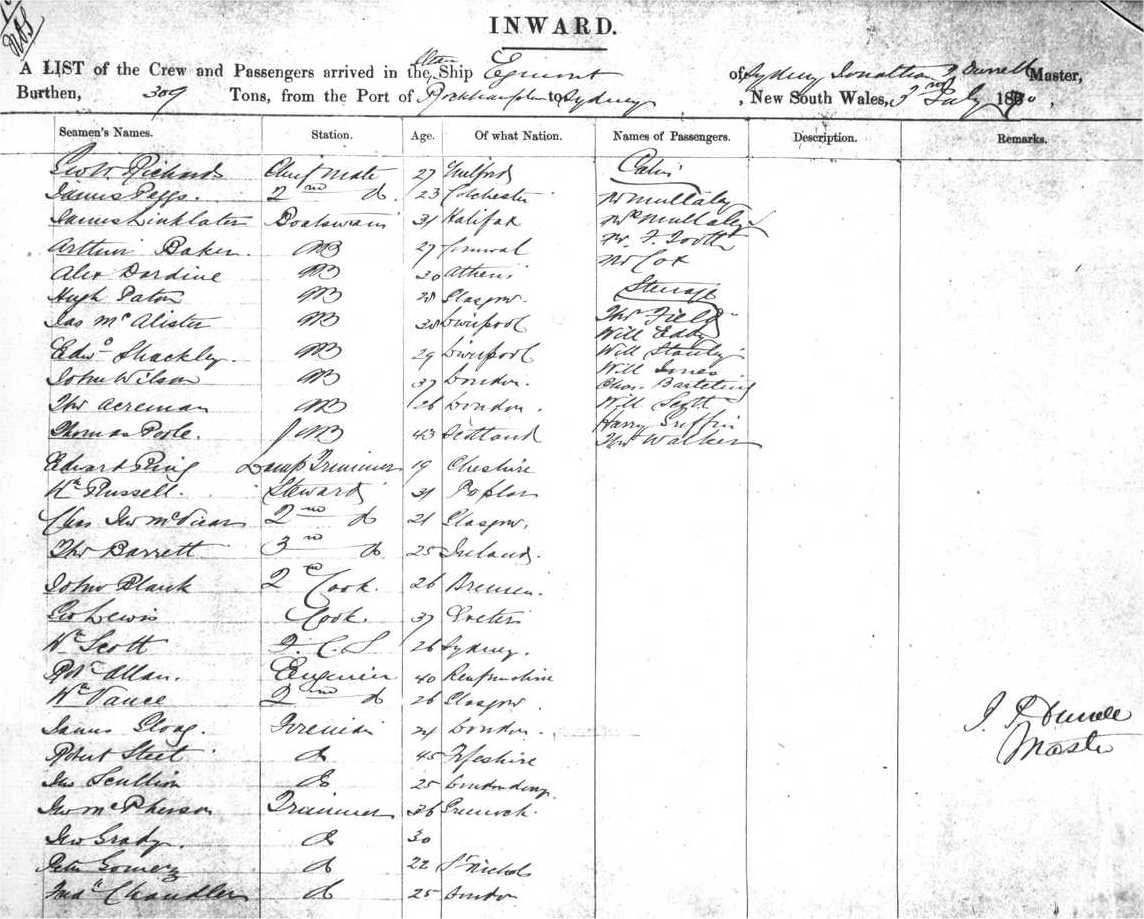 INWARD.
A LIST of the Crew and Passengers arrived in the Ship Egmont of Sydney Jonathan Master,
Burthen, 309 Tons, from the Port of Rockhampton to Sydney, New South Wales, 3rd July 18
Seamen's Names. Station. Age. Of what Nation. Names of Passengers. Description. Remarks.
Geo W. Richards Chief Mate 27 Cabin
James Peggs. 2nd do 23 Colchester Mr Mullaly
James Linklater Boatswain 31 Halifax Mrs Mullaly
Arthur Baker. AB 27 Mr F. Tooth
Alex AB 30 Athens Mr Cox
Hugh Paton AB 28 Glasgow. Steerage
Jas McAlister AB 38 Liverpool Thos Field
Will Eddy
Edwd Shackley. AB 29 Liverpool Will Stanley
John Wilson AB 37 London. Will
Chas.
Thos Acreman AB 26 London. Will Scott
Harry Griffin
Thomas Poole. AB 43 Scotland Thos Walker
Edward Lamp Trimmer 19 Cheshire
Wm Russell. Steward 31 Poplar
Chas Jno McVicar 2nd do 21 Glasgow.
Thos Barrett 3rd do 25 Ireland.
John Blank 2nd Cook. 26 Bremen.
Geo Lewis Cook. 37 Exeter
Wm Scott 26 Sydney.
Robt Allan. Engineer 40 Renfrewshire
Wm Vance 2nd do 26 Glasgow.
James Fireman London.
Robert Steet do 45 Fifeshire
Jno Scullion do 25 Londonderry
Jno McPherson Trimmer 36 Greenock.
Jno Grady. do 30
Peter Gomery do 22 St Nichols
Chandler do 25 London
Master